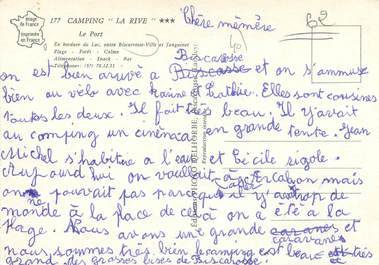 Image de France
Imprimée en France
177 CAMPING "LA RIVE" ★★★
Le Port
En bordure du Lac, entre Biscarrosse-Ville et Sanguinet
Plage - Forêt - Calme
Alimentation - Snack - Bar
Téléphone : (67) 78.12.33
62
40
Chère mémère
Biscarosse
on est bien arrivé à et on s'ammuse
bien au vélo avec Karine et Kathie. Elles sont cousines
toutes les deux. Il fait très beau. Il y'avait
au camping un cinéma en grande tente. Jean
Michel s'habitue a l'eau et Cécile rigole.
Aujourd'hui on voulait aller à Cap Ercalyon mais
on ne pouvait pas parcequ'il y'a trop de
monde à la place de celà on a été a la
Plage. Nous avons une grande caravane et
nous sommes très bien le camping est beau très
grand des grosses bises de Biscarosse.